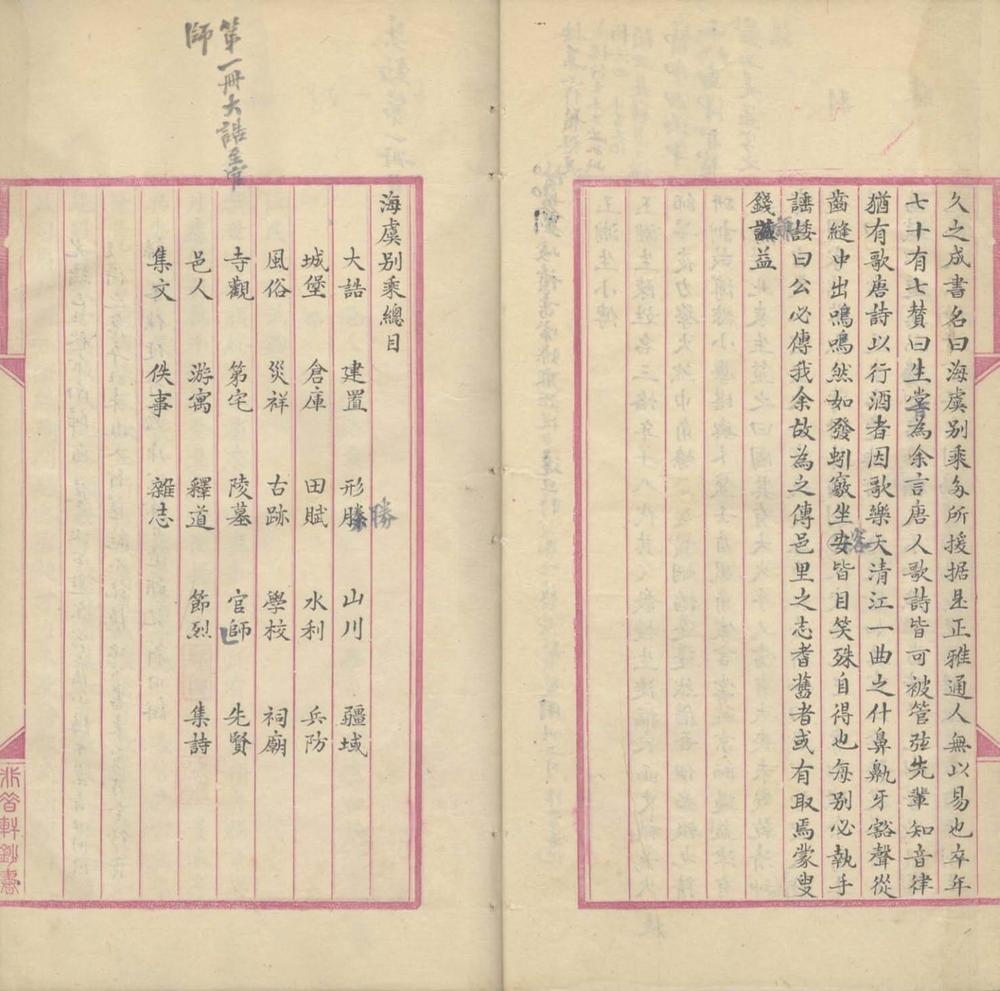 久之成書名曰海虞别乘多所援据是正雅通人無以易也卒年
七十有七贊曰生嘗為余言唐人歌詩皆可被管弦先輩知音律
猶有歌唐詩以行酒者因歌樂天清江一曲之什鼻鼽牙豁聲從
齒縫中出嗚嗚然如發蚓竅坐客皆目笑殊自得也每别必執手
諈諉曰公必傳我余故為之傳邑里之志耆舊者或有取焉蒙叟
錢謙益
第一冊大誥至官
師
海虞别乘總目
大誥 建置 形勝 山川 疆域
勝
城堡 倉庫 田賦 水利 兵防
風俗 災祥 古跡 學校 祠廟
寺觀 第宅 陵墓 官師 先賢
邑人 游寓 釋道 節烈 集詩
集文 佚事 雜志
軒鈔書